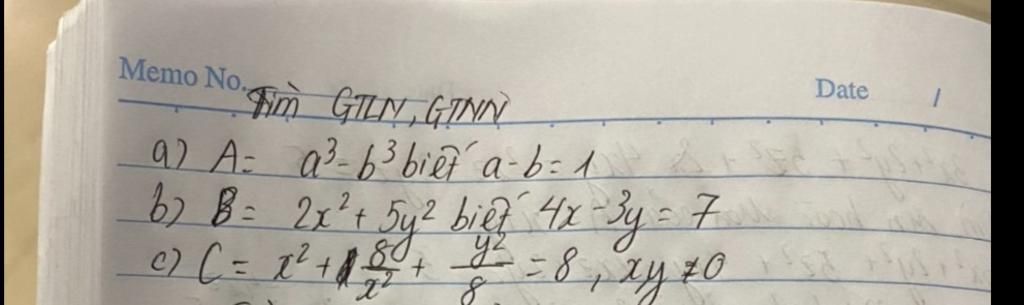 Memo No. Date /
Tìm GTLN, GTNN
a) A = a³ - b³ biết a - b = 1
b) B = 2x² + 5y² biết 4x - 3y = 7
c) C = x² + 8/x² + y²/8 = 8, xy ≠ 0